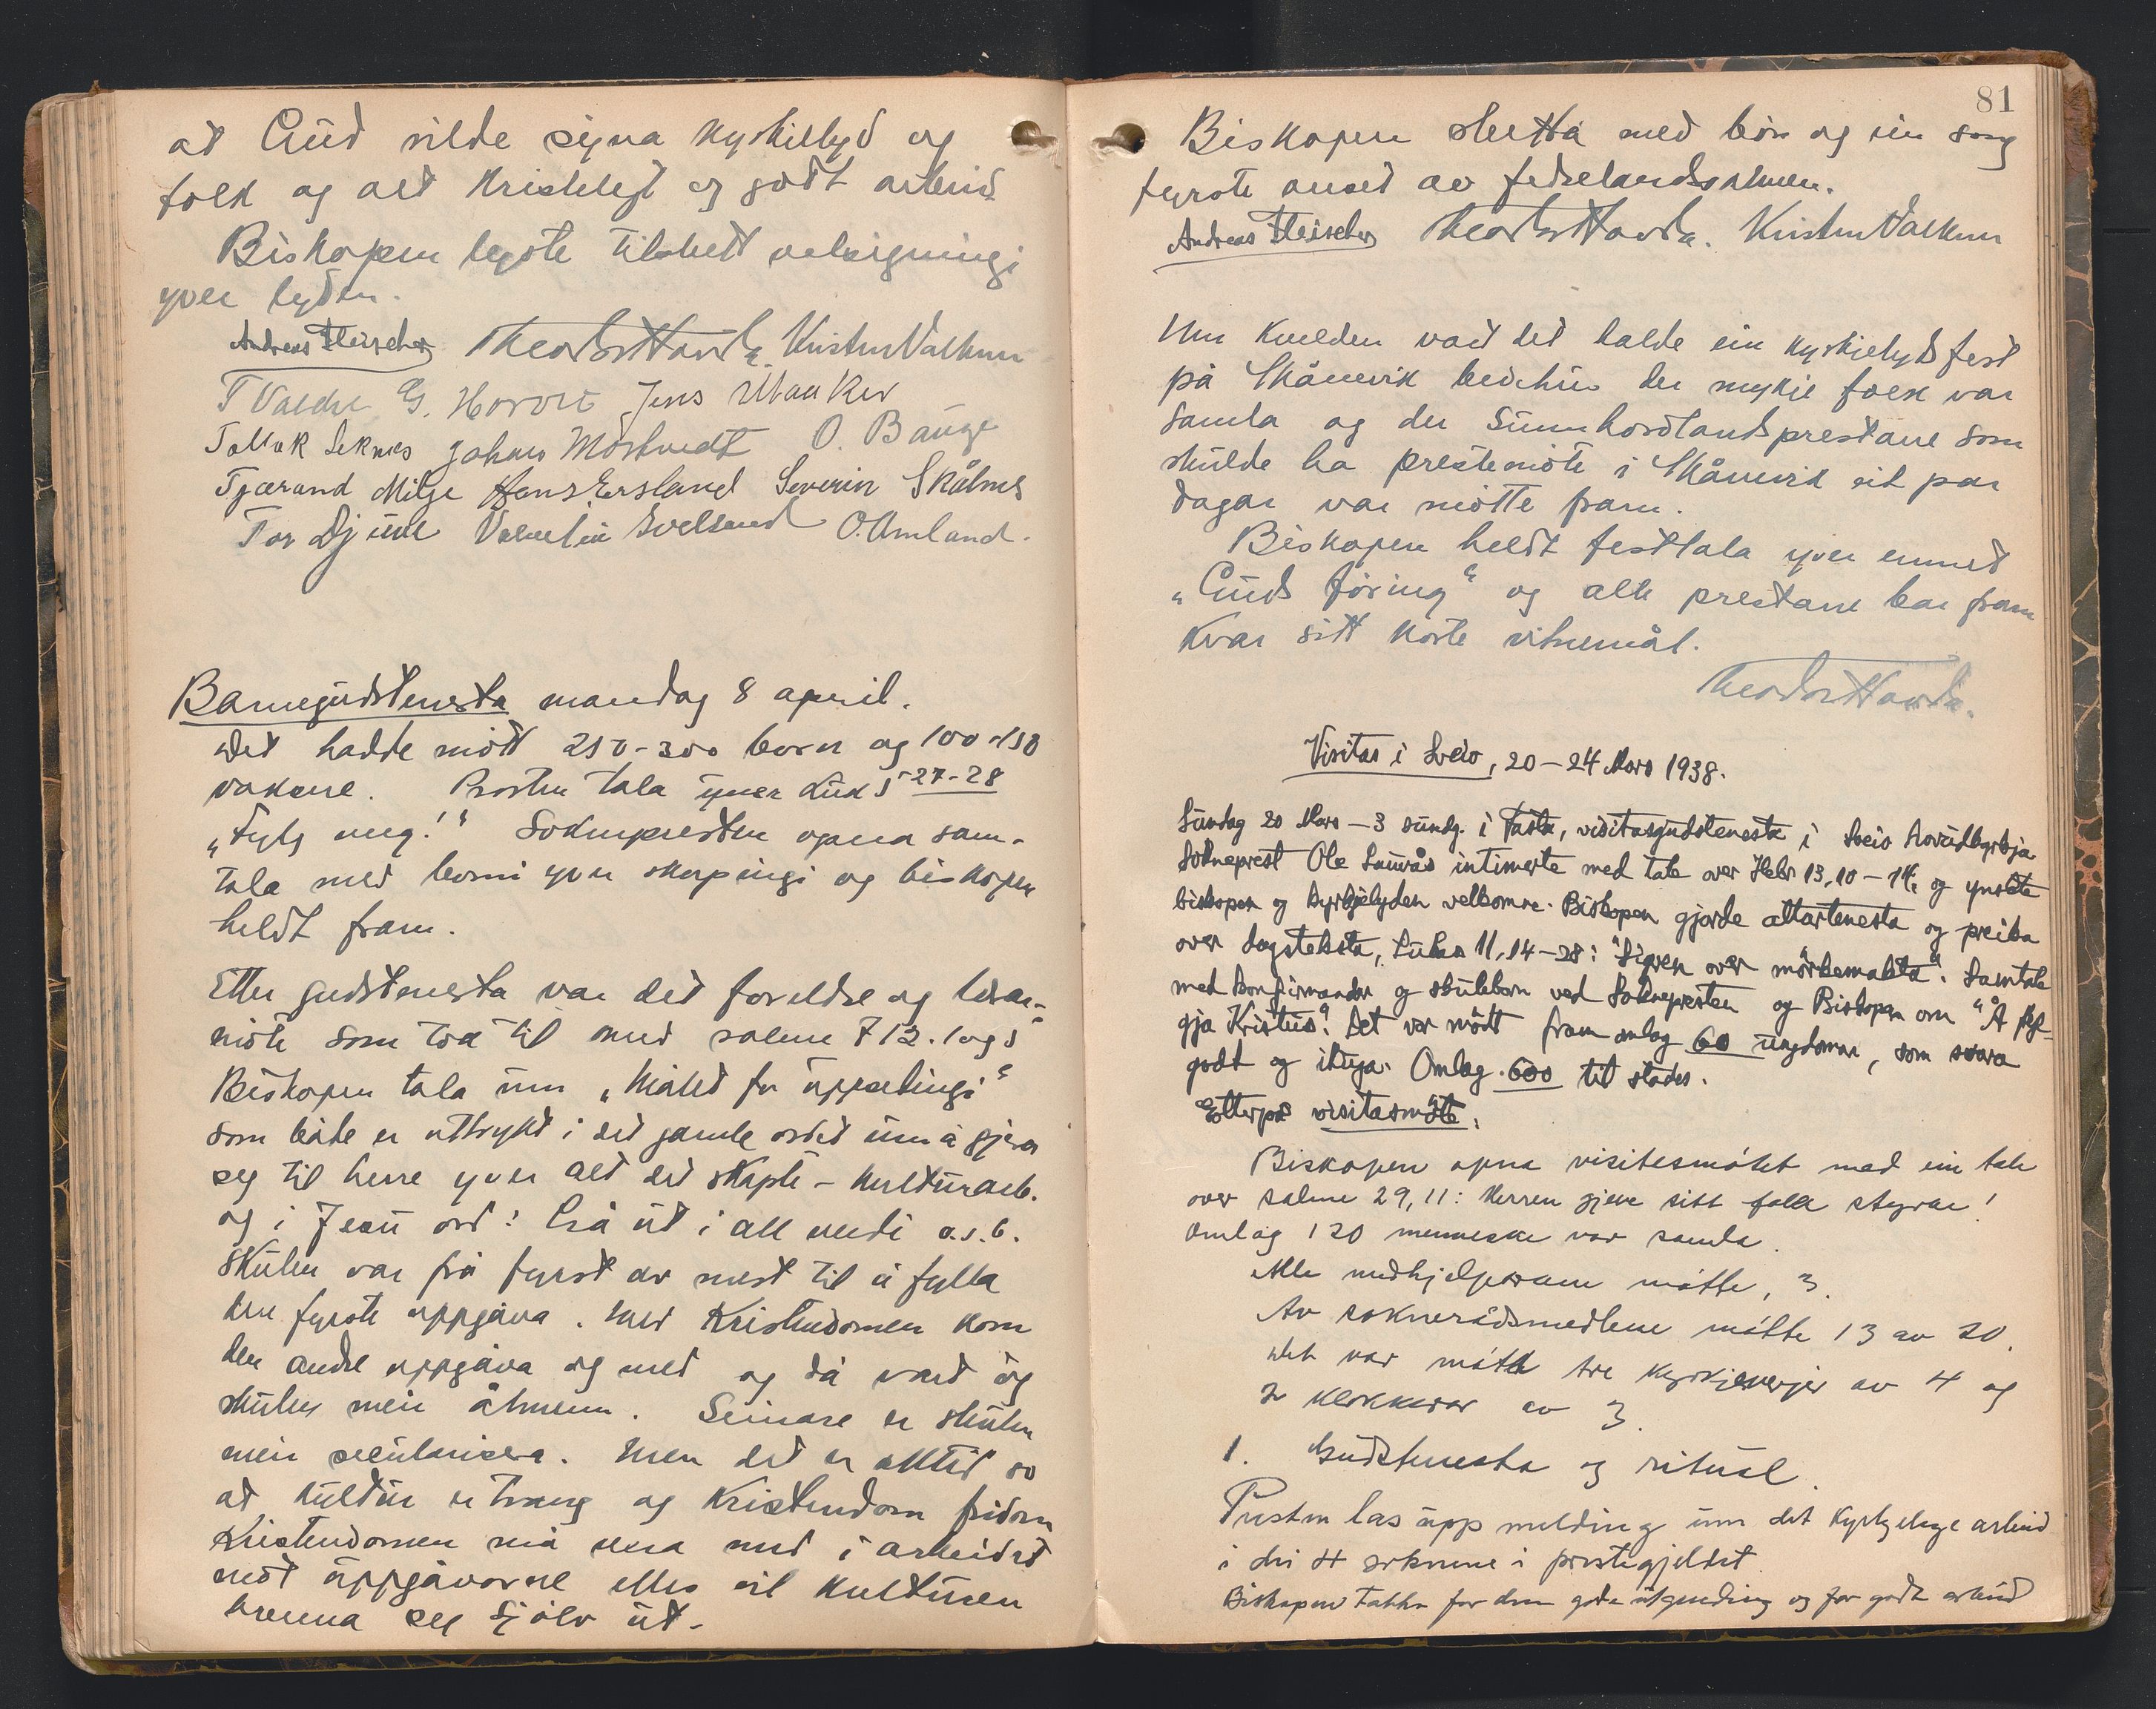 at Gud vilde signa kyrkjelyd og
folk og alt kristelegt og godt arbeid
Biskopen lyste tilslutt velsigningi
yver lyden.
Andreas Fleischer Theodor Havda. Kristen Valkner
T Valdre G. Horvei Jens Maaker
Tollak Seknes Johan Mostvedt O. Bauge
Tjærand Milje Hans Ersland Severin Skålnes
Tor Djuve Valentin Kvelsund O. Amland.
Barnegudstenesta mandag 8 april.
Det hadde møtt 250-300 born og 100-150
vaksne. Prosten tala yver Luk 5 27-28
„Fylg meg!“ Soknepresten opna sam-
tala med borni yver skapingi og biskopen
heldt fram.
Etter gudstenesta var det foreldre og lærar-
møte som tok til med salme 713. 1 og 5
Biskopen tala um „Målet for uppsedingi“
som både er uttrykt i det gamle ordet um å gjera
seg til herre yver alt det skapte - kulturarb.
og i Jesu ord: Gå ut i all verdi o.s.b.
Skulen var frå fyrst av mest til å fylla
den fyrste uppgåva. Med Kristendomen kom
den andre uppgåva og med og då vard òg
skulen meir ålmenn. Seinare er skulen
meir sekularisera. Men det er alltid so
at kultur er trang og Kristendom fridom
Kristendomen må vera med i arbeidet
med uppgåvorne elles vil kulturen
brenna seg sjølv ut.
81
Biskopen slutta med bøn og ein song
fyrste verset av fedrelandssalmen.
Andreas Fleischer Theodor Havda. Kristen Valkner
Um kvelden vard det halde ein kyrkjelydsfest
på Skånevik bedehus der mykje folk var
samla og der Sunnhordlandsprestane som
skulde ha prestemøte i Skånevik eit par
dagar var møtte fram.
Biskopen heldt festtala yver emnet
„Guds føring“ og alle prestane bar fram
kvar sitt korte vitnemål.
Theodor Havda.
Visitas i Sveio, 20-24 Mars 1938.
Sundag 20 Mars - 3 sundg. i Fasta, visitasgudstenesta i Sveio hovudkyrkja
Sokneprest Ole Saurås intimerte med tale over Hebr 13,10-14, og ynskte
biskopen og kyrkjelyden velkomne. Biskopen gjorde altartenesta og preika
over dagsteksta, Lukas 11,14-28: "Sigren over mørkemakta". Samtale
med konfirmandar og skuleborn ved Soknepresten og Biskopen om "Å fyl-
gja Kristus". Det var møtt fram omlag 60 ungdomar, som svara
godt og ihuga. Omlag 600 til stades.
Etterpå visitasmøte.
Biskopen opna visitasmøtet med ein tale
over salme 29,11: Herren gjeve sitt folk styrke!
Omlag 120 menneske var samla.
Alle medhjelparane møtte, 3.
Av soknerådsmedlene møtte 13 av 20.
Det var møtt tre kyrkjeverjer av 4 og
2 klokkarar av 3.
1. Gudstenesta og ritual.
Presten las upp melding um det kyrkjelege arbeid
i dei 4 soknene i prestegjeldet
Biskopen takka for den gode utgreiding og for godt arbeid